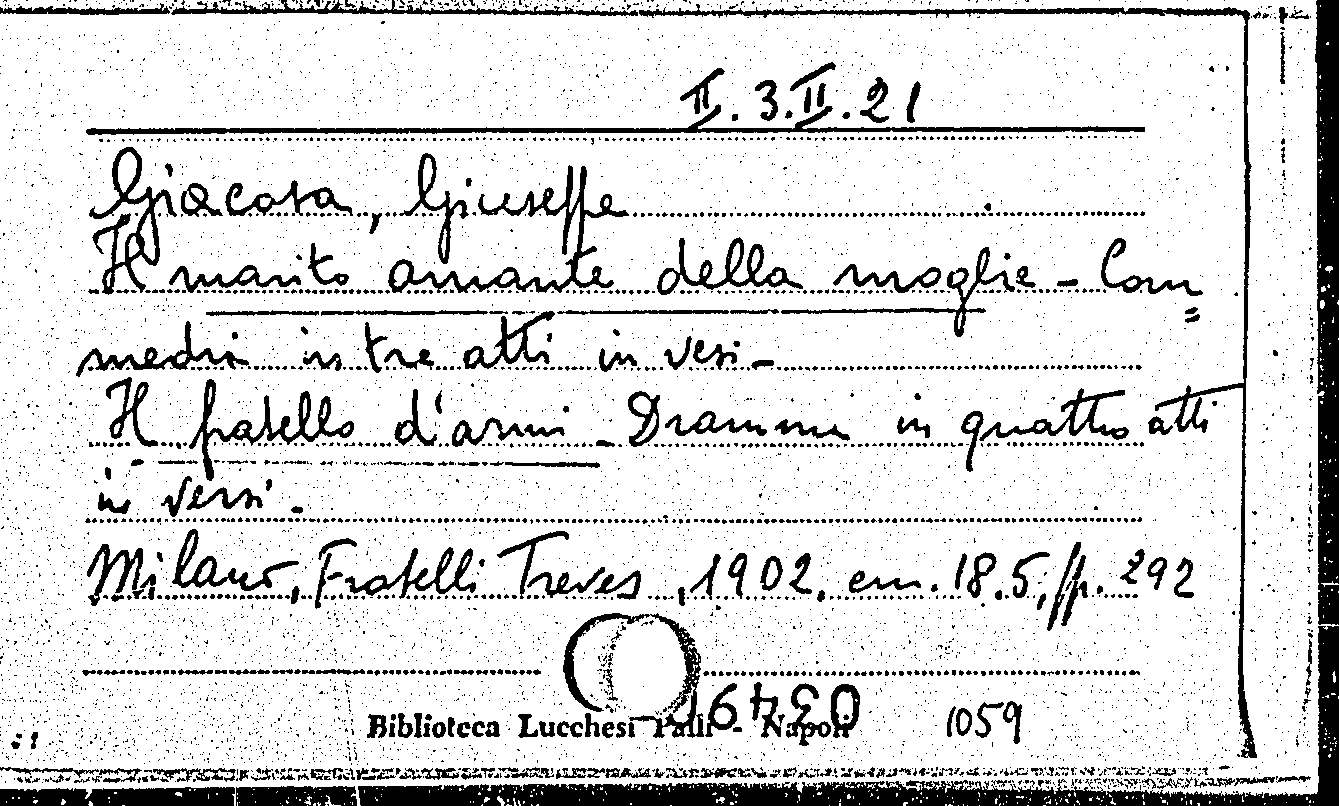 II. 3. II. 21
Giacosa, Giuseppe
Il marito amante della moglie - Com=
media in tre atti in versi -
Il fratello d'armi - Dramma in quattro atti
in versi -
Milano, Fratelli Treves, 1902, cm. 18.5, pp. 292
Biblioteca Lucchesi Palli - Napoli 1059